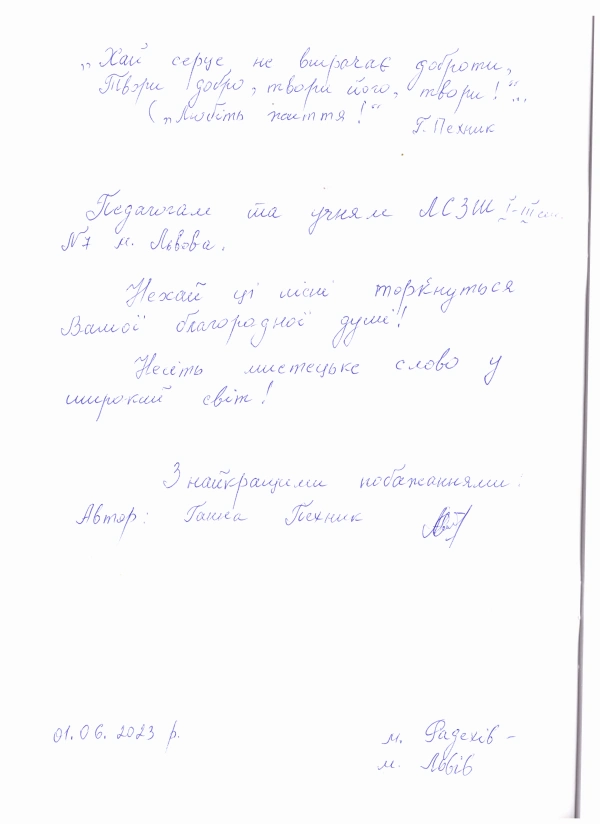 „Хай серце не втрачає доброти,
Твори добро, твори його, твори!“...
(„Любіть життя!“
Г. Пехник
Педагогам та учням ЛСЗШ I-III ст.
№7 м. Львова.
Нехай ці пісні торкнуться
Вашої благородної душі!
Несіть мистецьке слово у
широкий світ!
З найкращими побажаннями:
Автор: Ганна Пехник
01.06.2023 р.
м. Радехів -
м. Львів